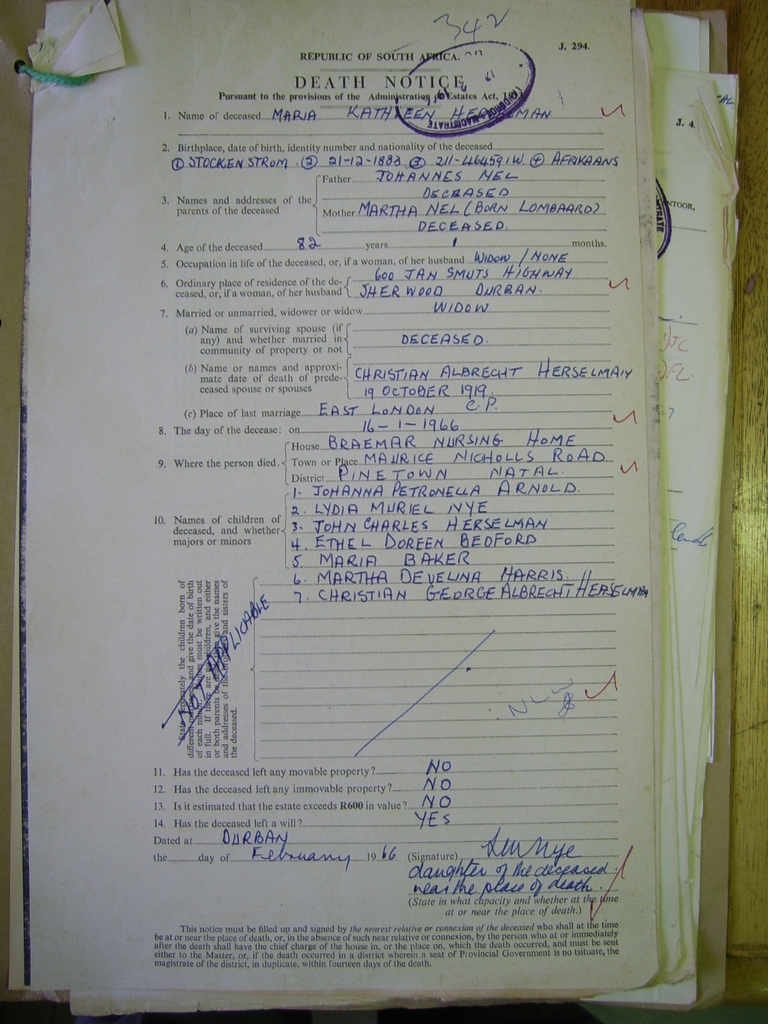 342
J. 294.
REPUBLIC OF SOUTH AFRICA.
DEATH NOTICE
Pursuant to the provisions of the Administration Estates Act,
1. Name of deceased MARIA KATHLEEN HERSELMAN
MAGISTRATE
2. Birthplace, date of birth, identity number and nationality of the deceased
① STOCKENSTROM ② 21-12-1883 ③ 211-464591W ④ AFRIKAANS
3. Names and addresses of the parents of the deceased
Father JOHANNES NEL
DECEASED
Mother MARTHA NEL (BORN LOMBAARD)
DECEASED.
4. Age of the deceased 82 years 1 months.
5. Occupation in life of the deceased, or, if a woman, of her husband WIDOW / NONE
6. Ordinary place of residence of the deceased, or, if a woman, of her husband
600 JAN SMUTS HIGHWAY
SHERWOOD DURBAN.
7. Married or unmarried, widower or widow WIDOW
(a) Name of surviving spouse (if any) and whether married in community of property or not
DECEASED.
(b) Name or names and approximate date of death of predeceased spouse or spouses
CHRISTIAN ALBRECHT HERSELMAN
19 OCTOBER 1919.
(c) Place of last marriage EAST LONDON C.P.
8. The day of the decease: on 16-1-1966
9. Where the person died.
House BRAEMAR NURSING HOME
Town or Place MAURICE NICHOLLS ROAD
District PINETOWN NATAL.
10. Names of children of deceased, and whether majors or minors
1. JOHANNA PETRONELLA ARNOLD.
2. LYDIA MURIEL NYE
3. JOHN CHARLES HERSELMAN
4. ETHEL DOREEN BEDFORD
5 MARIA BAKER
6. MARTHA DEVELINA HARRIS.
7. CHRISTIAN GEORGE ALBRECHT HERSELMAN
the children born of
and give the date of birth
of each must be written out
in full. If there are children, and either
or both parents give the names
and addresses of the and sisters of
the deceased.
NOT APPLICABLE
11. Has the deceased left any movable property? NO
12. Has the deceased left any immovable property? NO
13. Is it estimated that the estate exceeds R600 in value? NO
14. Has the deceased left a will? YES
Dated at DURBAN
the day of February 1966
(Signature) LMNye
daughter of the deceased
near the place of death.
(State in what capacity and whether at the time
at or near the place of death.)
This notice must be filled up and signed by the nearest relative or connexion of the deceased who shall at the time
be at or near the place of death, or, in the absence of such near relative or connexion, by the person who at or immediately
after the death shall have the chief charge of the house in, or the place on, which the death occurred, and must be sent
either to the Master, or, if the death occurred in a district wherein a seat of Provincial Government is no tsituate, the
magistrate of the district, in duplicate, within fourteen days of the death.
J. 4.